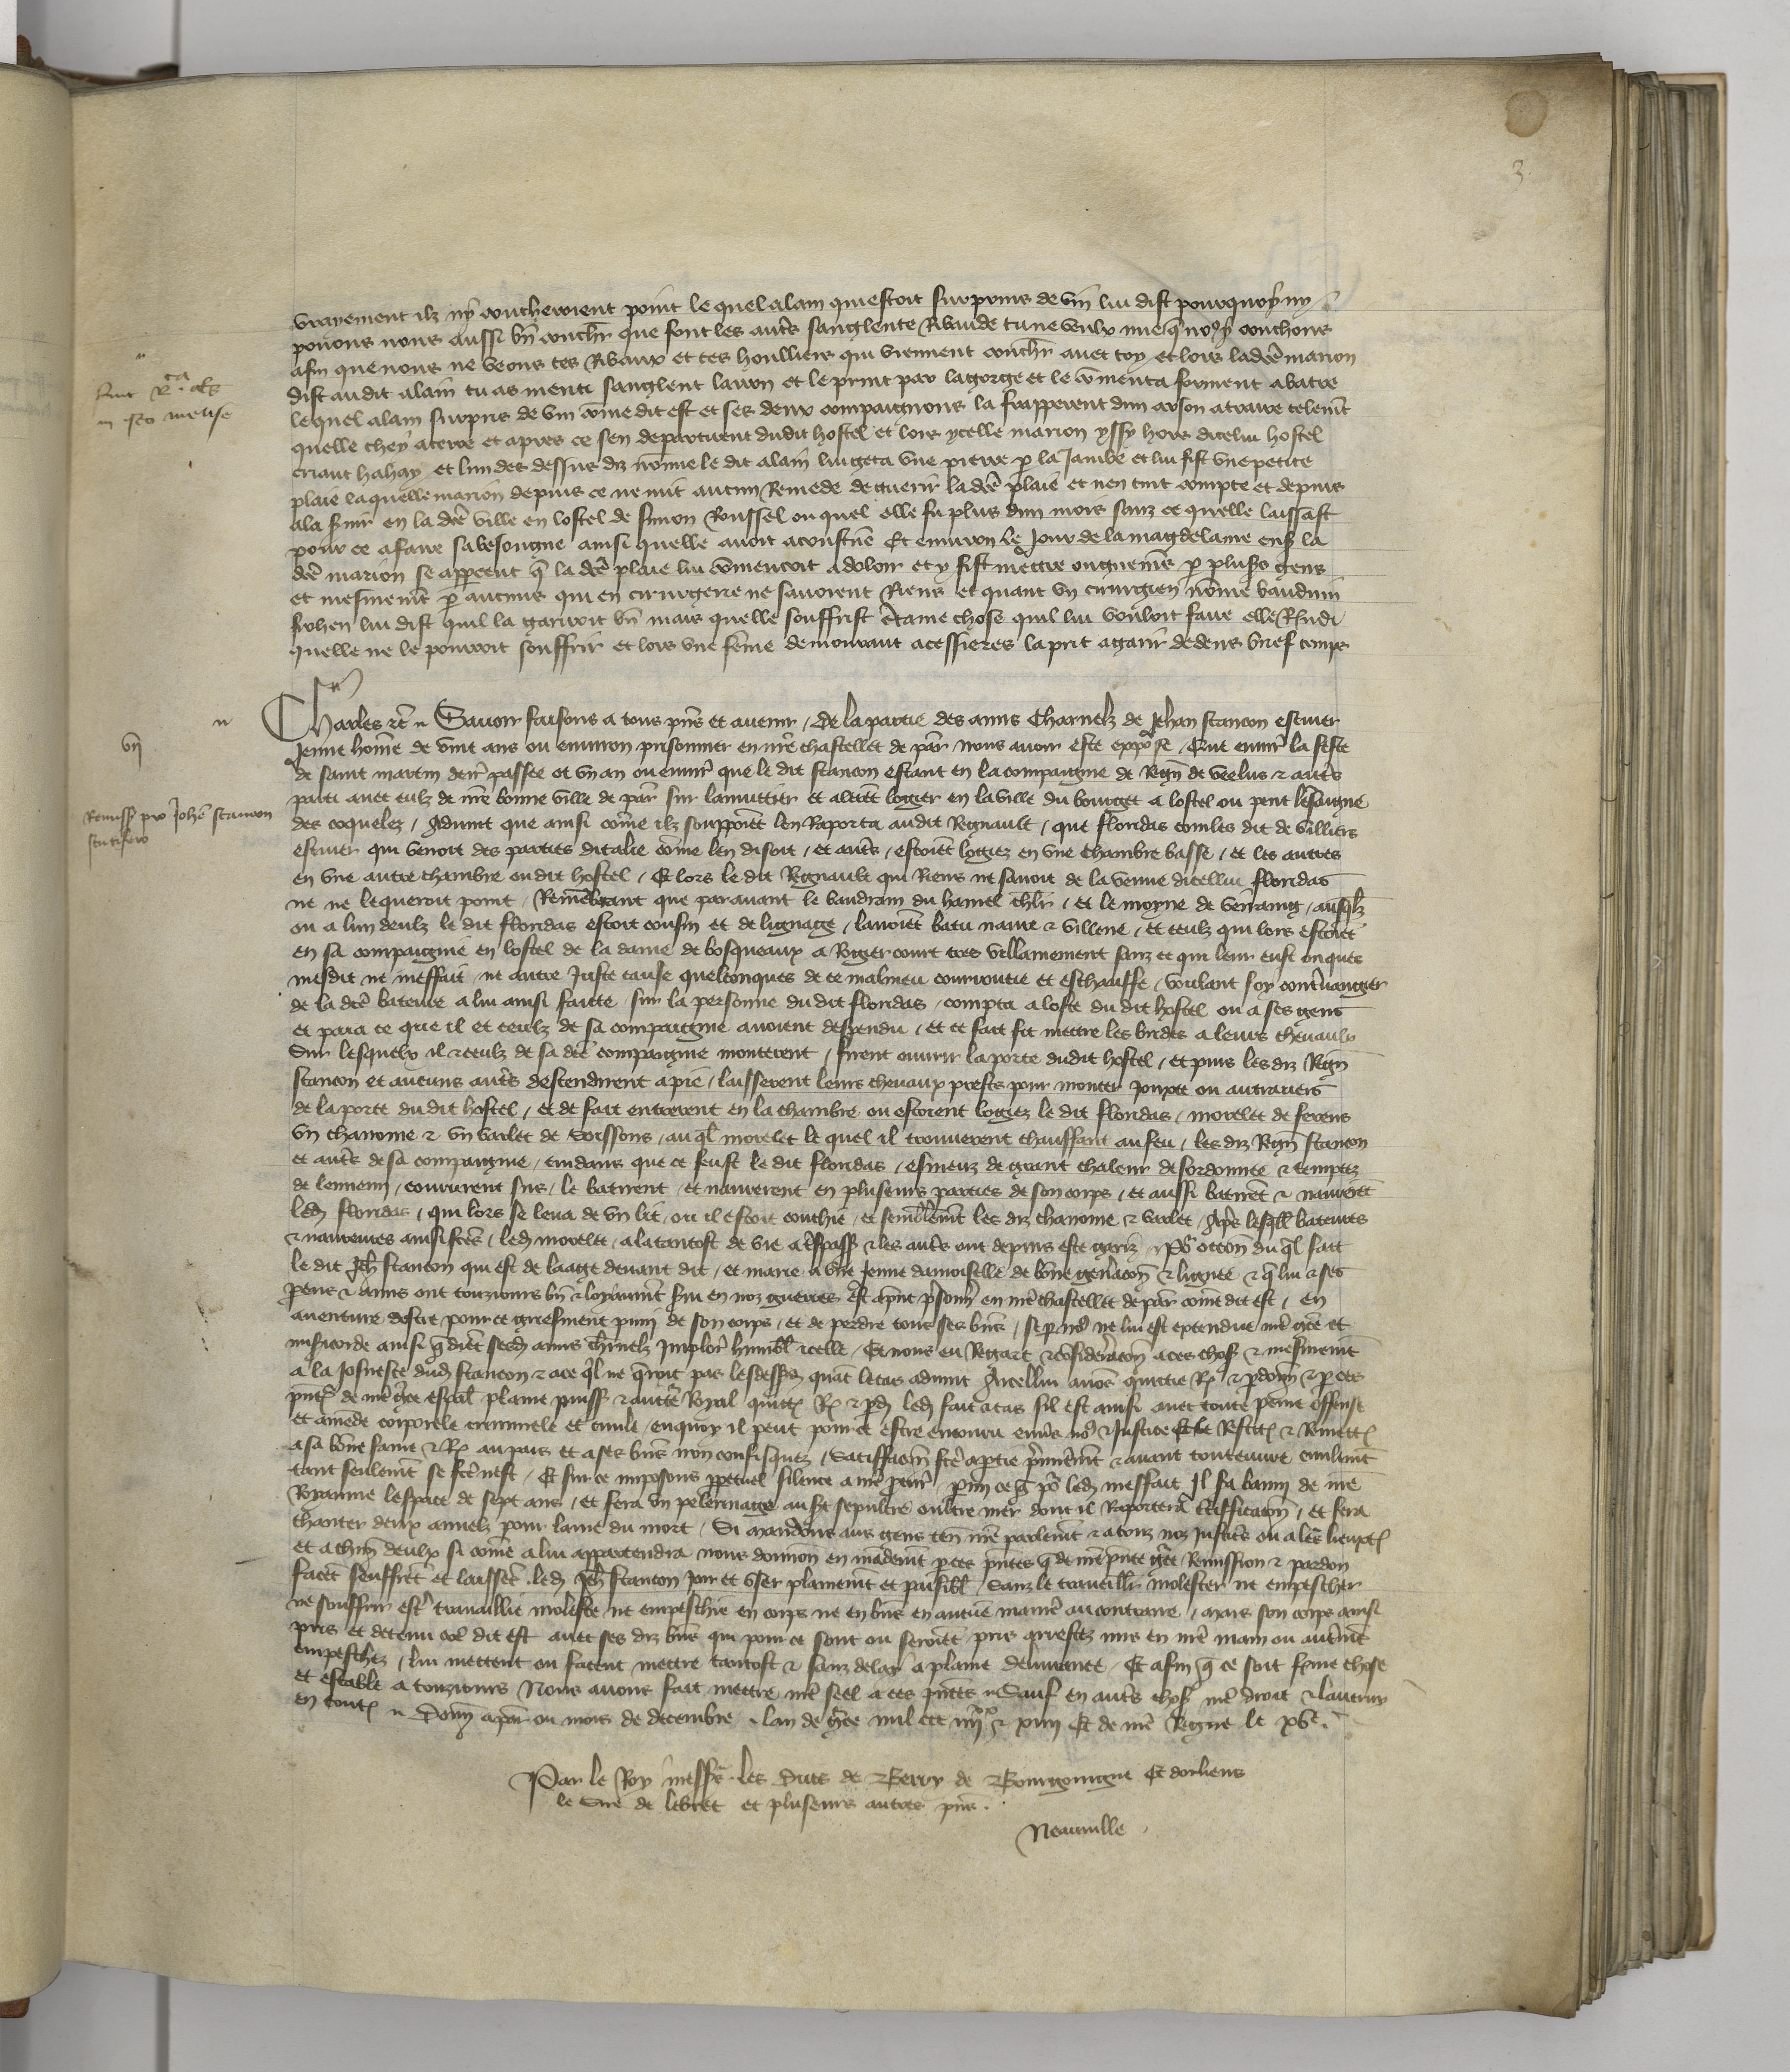 3
vrayement ilz ny coucheroient point le quel alain qui estoit surpruis de vin lui dist pourquoy ny
pouons nous aussi bñ couchr que font les autẽs sanglente Ribaude tu ne veulx mie q̃ no9 y couchons
afin que nous ne veons tes Ribaux et tes houlliers qui viennent couchr auec toy et lors ladcẽ marion
dist audit alain tu as menti sanglent larron et le print par la gorge et le cõmenca forment a batre
lequel alain surpris de vin cõme dit est et ses deux compaignons la frapperent dun arson a traire telemẽt
quelle chey a terre et apres ce sen departirent dudit hostel et lors ycelle marion yssy hors dicelui hostel
criant hahay et lun des dessus diz nõme le dit alain lui geta vne pierre p la Jambe et lui fist vne petite
plaie laquelle marion depuis ce ne mit aucun Remede de guerir ladcẽ plaie et nen tint compte et depuis
ala seruir en la dcẽ ville en lostel de simon Roussel ou quel elle fu plus dun mois sanz ce quelle laissast
pour ce a faire sa besongne ainsi quelle auoit acoustumé Et enuiron le Jour de la magdelaine ens la
dcẽ marion se apperceut q̃ la dcẽ plaie lui cõmencoit a doloir et y fist mettre onguemẽs p pluss gens
et mesmemẽt p aucuns qui en cirurgerie ne sauoient Riens et quant vn cirurgien nõme bauduin
frohen lui dist quil la gariroit bñ mais quelle souffrist c̃taine chose quil lui vouloit faire elle Rñdi
quelle ne le pourroit souffrir et lors vne feme demourant a cessieres la prit a garir dedens brief temps
Charles etc̃ Sauoir faisons a tous pñs et auenir, De la partie des amis Charnelz de Jehan stancon escuier
Jeune home de vint ans ou enuiron prisonnier en nr̃e chastellet de par̃ nous auoir este exposé, Que enuir̃ la feste
de saint martin derr̃ passée ot vn an ou enuir̃ que le dit stancon estant en la compaignie de Regñ de veelus & autr̃s
parti auec eulz de nr̃e bonne ville de par̃ sur lanuittier et alerẽt logier en la ville du bourget a lostel ou pent lensaigne
des coquelez, Aduint que ainsi come ilz souppoiẽt len Raporta audit Regnault, que floridas combles dit de villiers
escuier qui venoit des parties ditalie cõme len disoit, et autr̃s, estoiẽt logiez en vne chambre basse, et les autres
en vne autre chambre oudit hostel, Et lors le dit Regnault qui Riens ne sauoit de la venue dicellui floridas
ne ne le queroit point, Remẽbrant que parauant le baudrain du hamel chl̃r, et le moyne de , ausqlz
ou a lun deulz le dit floridas estoit cousin et de lignage, lauoiẽt batu naure & villené, et ceulz qui lors estoiẽt
en sa compaignie en lostel de la dame de bosqueaux a Rigercourt tres villainement sanz ce qui leur eust onques
mesdit ne meffait, ne autre Juste cause quelconques de ce malmeu courroucie et eschauffe, voulant soy contrvangier
de la dcẽ bateure a lui ainsi faicte, sur la personne du dit floridas, compta a loste du dit hostel ou a ses gens
et paia ce que il et ceulz de sa compaignie auoient despendu, et ce fait fit mettre les brides a leurs cheuaulx
Sur lesquelx il & ceulz de sa dcẽ compaignie monterent, firent ouurir la porte dudit hostel, et puis les diz Regñ
stancon et aucuns autr̃s descendirent a pié, laisserent leurs cheuaux prests pour monter Jouxte ou au trauers
de la porte du dit hostel, et de fait entrerent en la chambre ou estoient logiez le dit floridas, morelet de ferens
vn chanoine & vn varlet de Soissons, au ql̃ morelet le quel il trouuerent chauffant au feu, les diz Regñ stancon
et autr̃s de sa compaignie, cuidans que ce feust le dit floridas, esmeuz de grant chaleur desordonnee & temptez
de lennemi, coururent sus, le batirent, et naurerent en plusieurs parties de son corps, et aussi batirẽt & naurerẽt
led floridas, qui lors se leua de vn lit, ou il estoit couchié, et semblẽmt les diz chanoine & varlet, Apr̃s lesqll̃ bateures
& naureures ainsi fcẽs, led morelet, ala tantost de vie a t̃spass & les autr̃s ont depuis este gariz, Po2 occoñ du ql̃ fait
le dit Jeh̃ stancon qui est de laage deuant dit, et marie a vne Jeune damoiselle de bõne gen̄acoñ & lignee & q̃ lui & ses
peres & amis ont touzjours bñ & loyaumẽt serui en noz guerres est a pñt p̃sonñ en nr̃e chastellet de par̃ come dit est, en
auenture destre pour ce griefment puni de son corps, et de perdre tous ses biẽs, se p nõ ne lui est extendue nr̃e grc̃e et
mis̃icorde ainsi q̃ diẽt sesd amis charnelz Implor̃ humbl̃ icelle, Et nous eu Regart & c̃sideracoñ a ces chos̃ & mesmemẽt
a la Josnesce dud stancon & a ce ql̃ ne q̃roit pas lesdess quãt le cas aduint Aicellui auõs quictie Rx & p̃doñe & p ces
pñtẽ de nr̃e grc̃e esp̃al plaine puiss & auctẽ Royal quittõ Rx & p̃d led fait & cas sil est ainsi auec toute peine offense
et amẽde corporele criminele et ciuile en quoy il peut pour ce estre encouru enuer̃s nõ & Justice Et le Restitõ & Remettõ
a sa bõne fame & Rx au pais et a ses biẽs non confisquez, Satisffacoñ fcẽ a ptie p̃mierẽmt & auant touteuure ciuilemẽt
tant seulemẽt se fcẽ nest, Et sur ce imposons ppetuel silence a nr̃e procur̃ parmi ce q̃ po2 led meffait Il sa banni de nr̃e
Royaume lespace de sept ans, et fera vn pelerinage au st̃ sepulcre oultre mer dont il Raportera certifficacoñ, et fera
chanter deux annelz pour lame du mort, Si mandons aus gens teñ nr̃e parlemẽt & a touz noz Justic̃s ou a leurs lieuxtẽ
et a chũn deulx si come a lui appartendra nous donnon en mãdemẽt p ces pñtes q̃ de nr̃e pñte grc̃e Remission & pardon
facẽt seuffrẽt et laissẽt led Jeh̃ stancon Joir et vser plainemẽt et paisibl̃ sanz le trauaillr̃ molester ne empeschier
ne souffrir estre trauaillie moleste ne empeschie en corps ne en biẽs en aucũe manier̃ au contraire, mais son corps ainsi
pris et detenu cõe dit est auec ses diz biẽs qui pour ce sont ou seroiẽt pris arrestez mis en nr̃e main ou autr̃mẽt
empeschiez, lui mettent ou facent mettre tantost & sanz delay a plaine deliurance, Et afin q̃ ce soit ferme chose
et estable a touzjours Nous auons fait mettre nr̃e seel a ces pñtes Sauf en autr̃s chos̃ nr̃e droit & lautruy
en toutẽ Donñ a par̃ ou mois de decembre lan de grc̃e mil ccc iiijxx & xiiij Et de nr̃e Regne le xve.
Par le Roy messrs les ducs de Berry de Bourgoingne Et dorliens
le sire de lebret et pluseurs autres pñs.
Neauville
vij
Remiss pro Johẽ stancon
scutifero